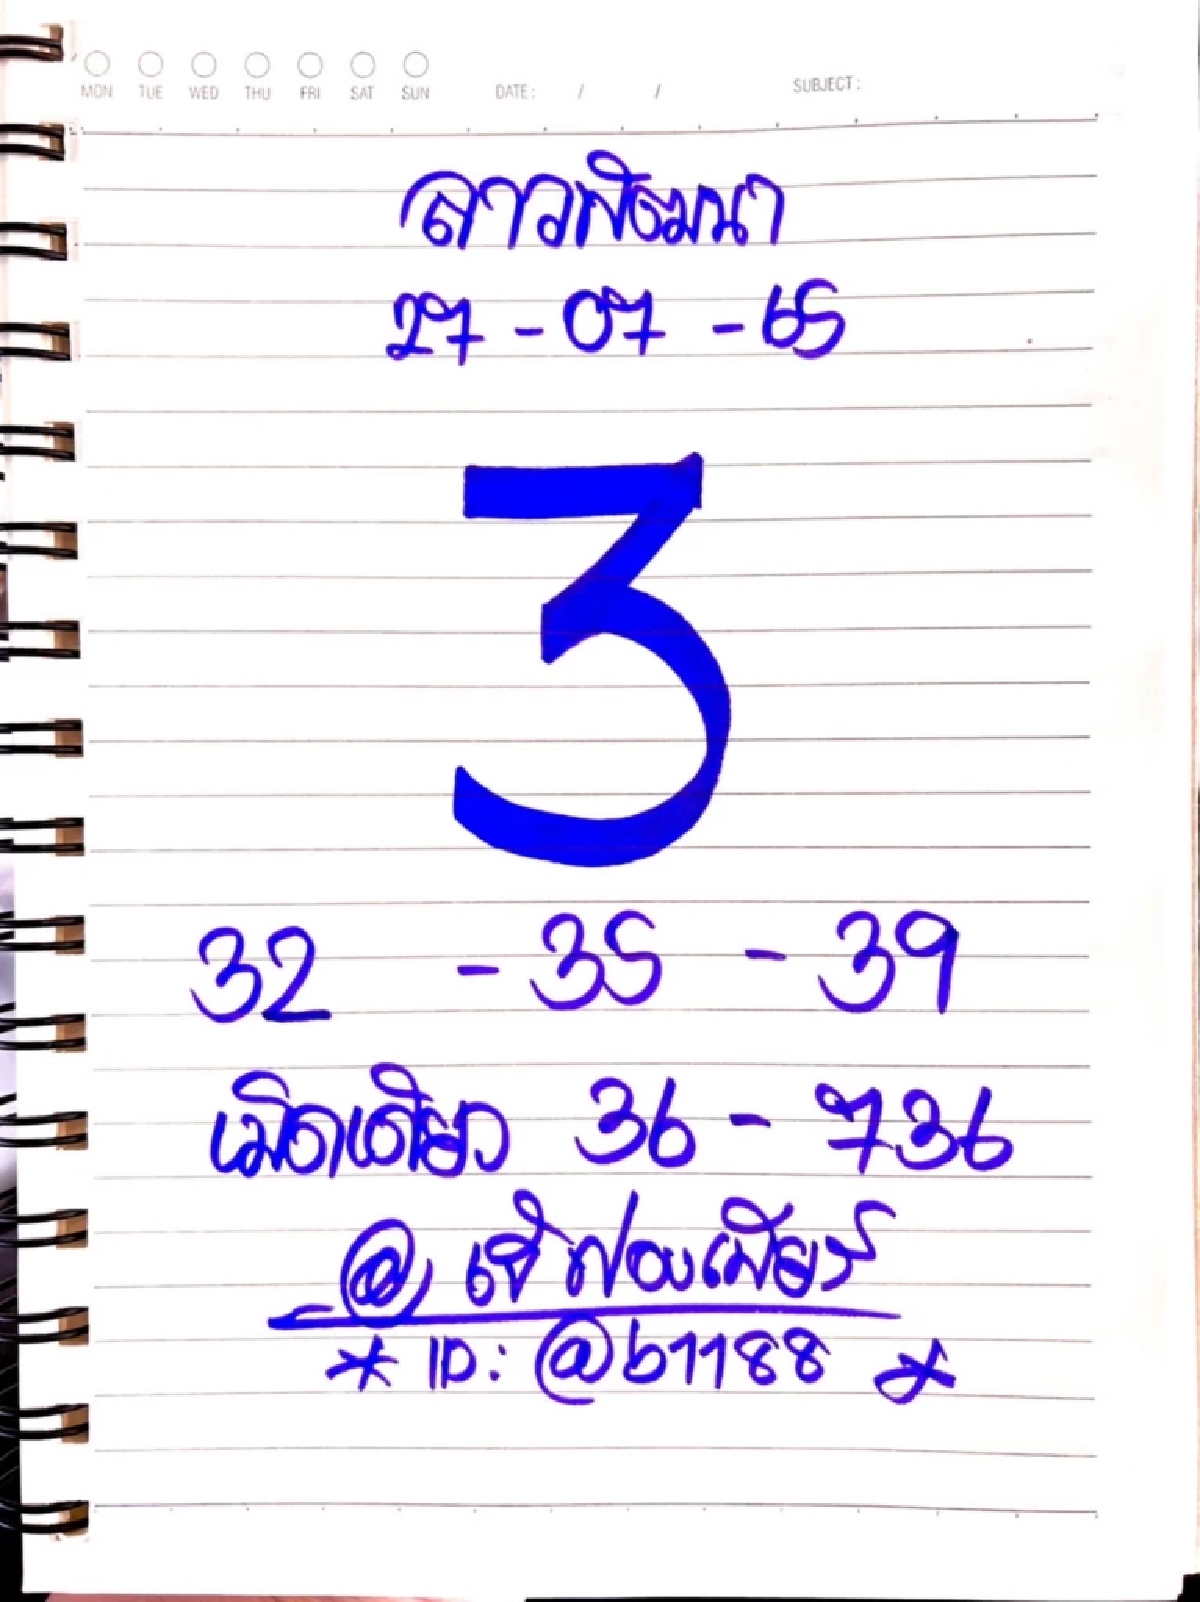 MON TUE WED THU FRI SAT SUN DATE: / / SUBJECT:
ลาวพัฒนา
27-07-65
3
32 - 35 - 39
เม็ดเดียว 36 - 736
@ เจ๊ฟองเบียร์
* ID: @b1188 *